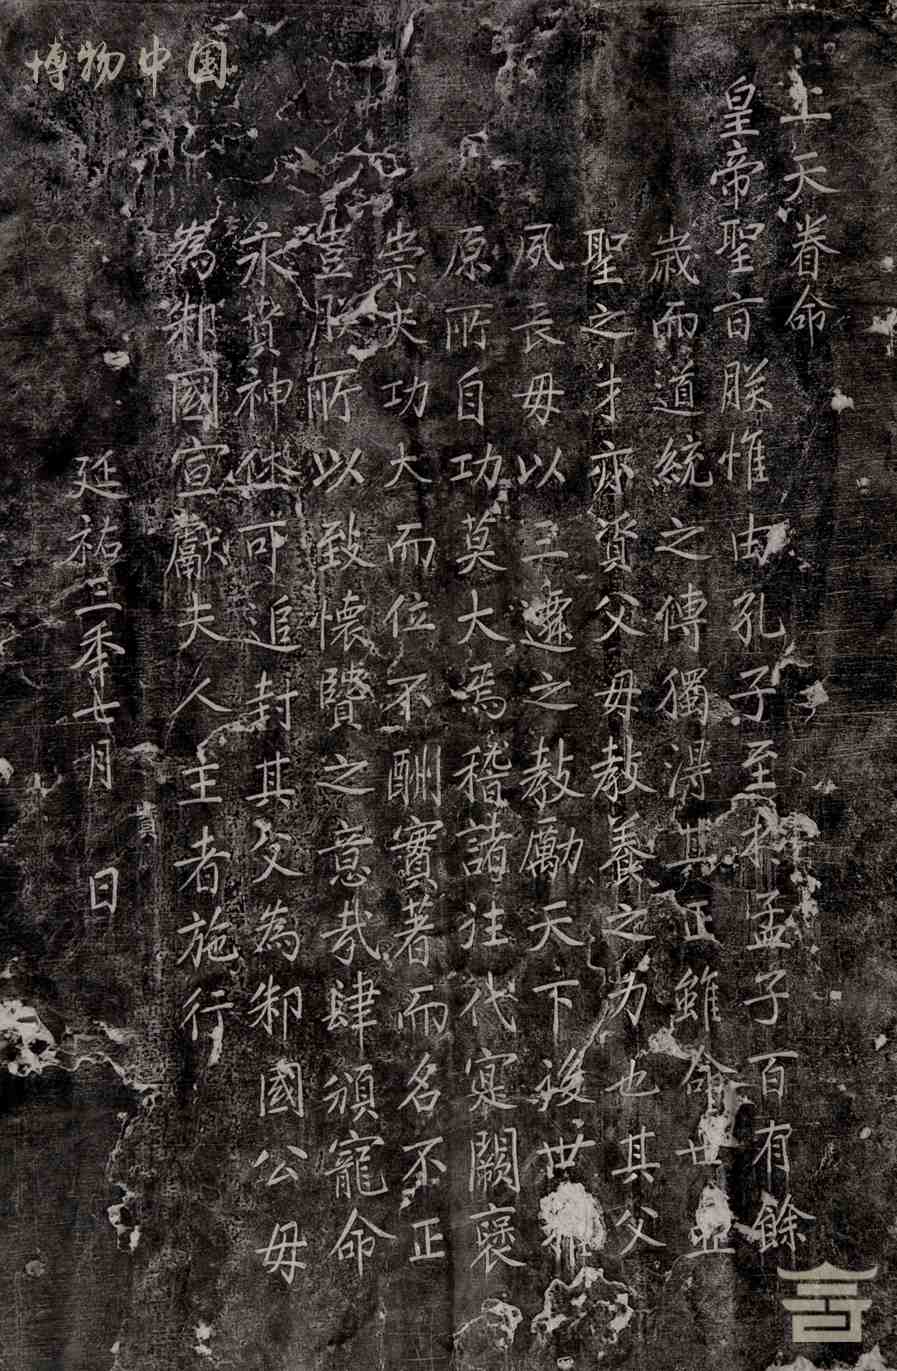 博物中国
上天眷命
皇帝聖旨朕惟由孔子至于孟子百有餘
歲而道統之傳獨得其正雖命世亞
聖之才亦資父母教養之力也其父
夙丧母以三遷之教勵天下後世推
原所自功莫大焉稽諸往代寔闕褒
崇夫功大而位不酬實著而名不正
豈朕所以致懷賢之意哉肆頒寵命
永賁神休可追封其父為邾國公母
為邾國宣獻夫人主者施行
延祐三年七月 日